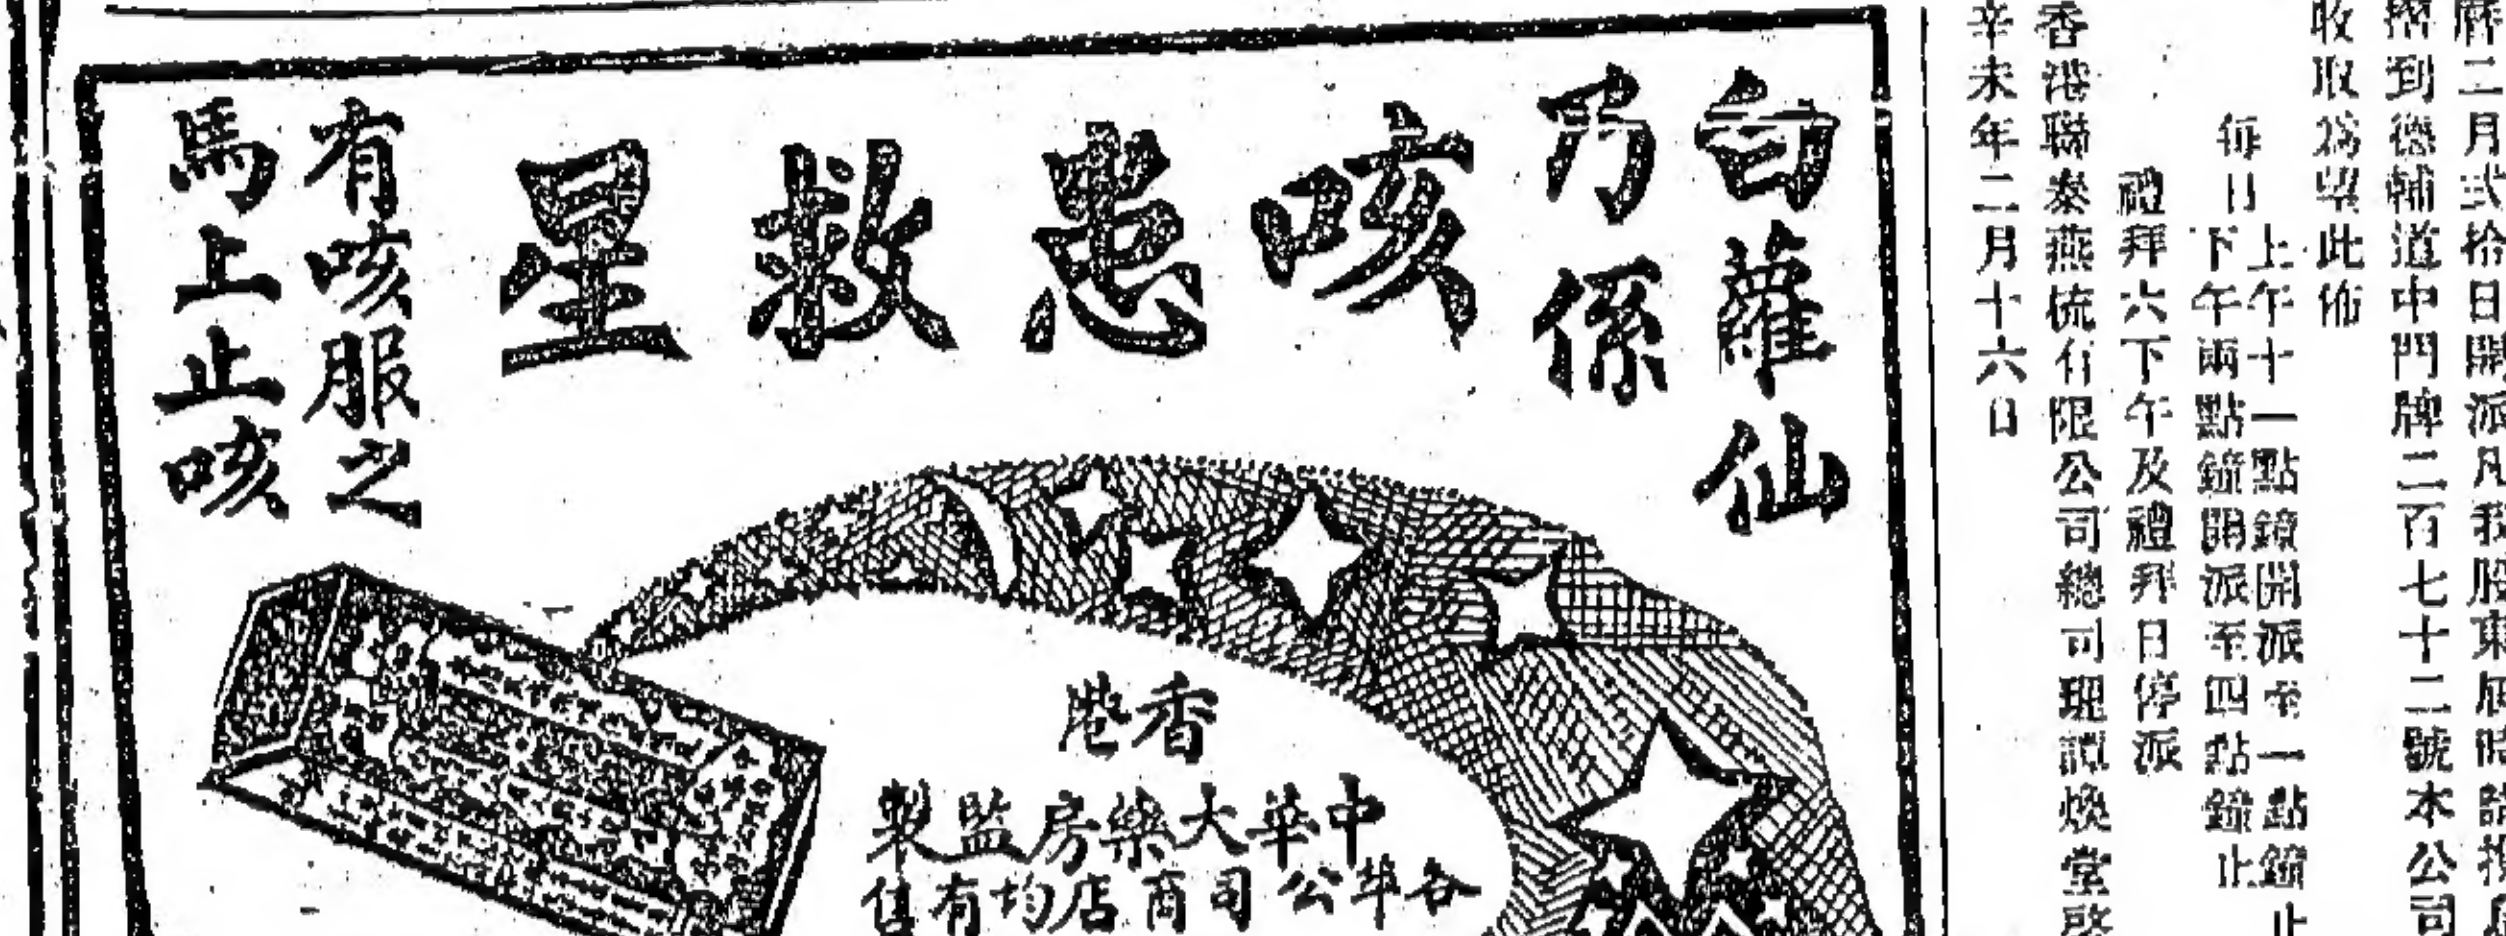 曆二月弍拾日開派凡我股東屆時請
摺到德輔道中門牌二百七十二號本公司
收取為望此佈
每日
上午十一點鐘開派至一點鐘止
下午兩點鐘開派至四點鐘止
禮拜六下午及禮拜日停派
香港聯泰燕梳有限公司總司理譚煥堂啓
辛未年二月十六日
白蘿仙
乃係
咳患救星
有咳服之
馬上止咳
香港
中華大藥房監製
各埠公司商店均有售